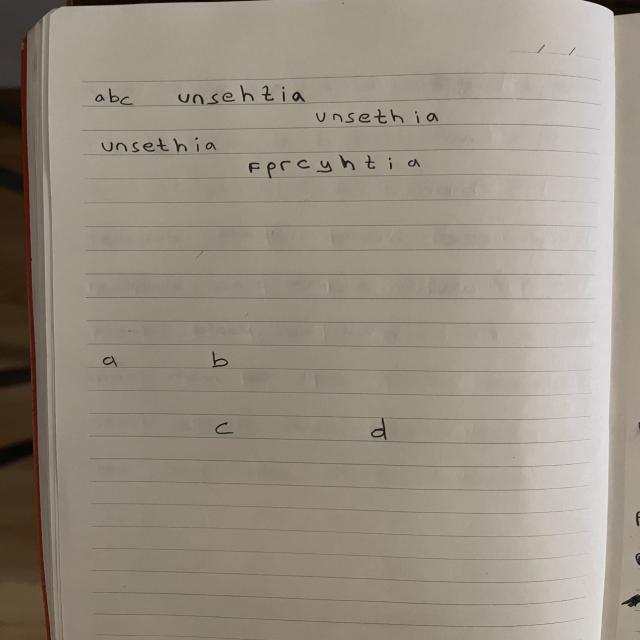 abc unsehtia
unsethia
unsethia
Fprcyhtia
a b
c d